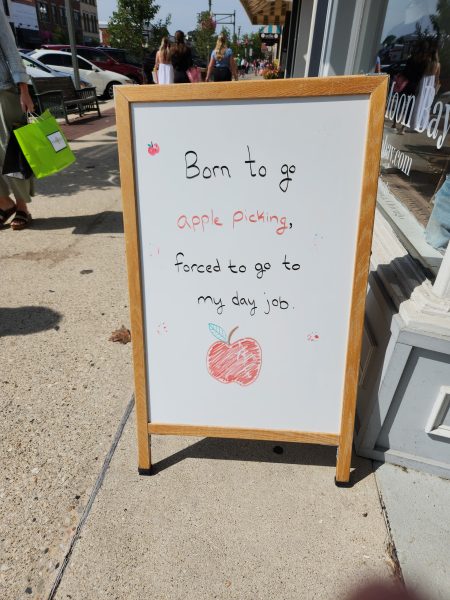 Born to go
apple picking,
forced to go to
my day job.
Bay
.com